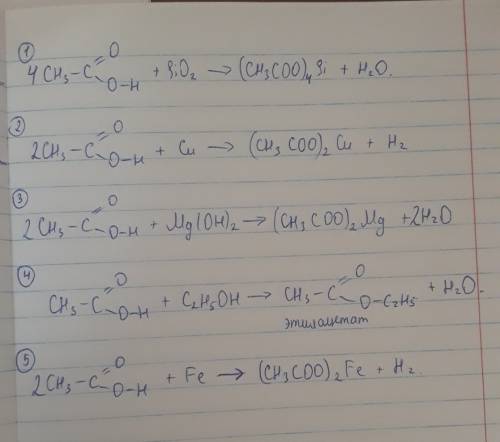 ①
4CH₃-C=O-O-H + SiO₂ → (CH₃COO)₄Si + H₂O.
②
2CH₃-C=O-O-H + Cu → (CH₃COO)₂Cu + H₂
③
2CH₃-C=O-O-H + Mg(OH)₂ → (CH₃COO)₂Mg + 2H₂O
④
CH₃-C=O-O-H + C₂H₅OH → CH₃-C=O-O-C₂H₅ + H₂O.
этилацетат
⑤
2CH₃-C=O-O-H + Fe → (CH₃COO)₂Fe + H₂.